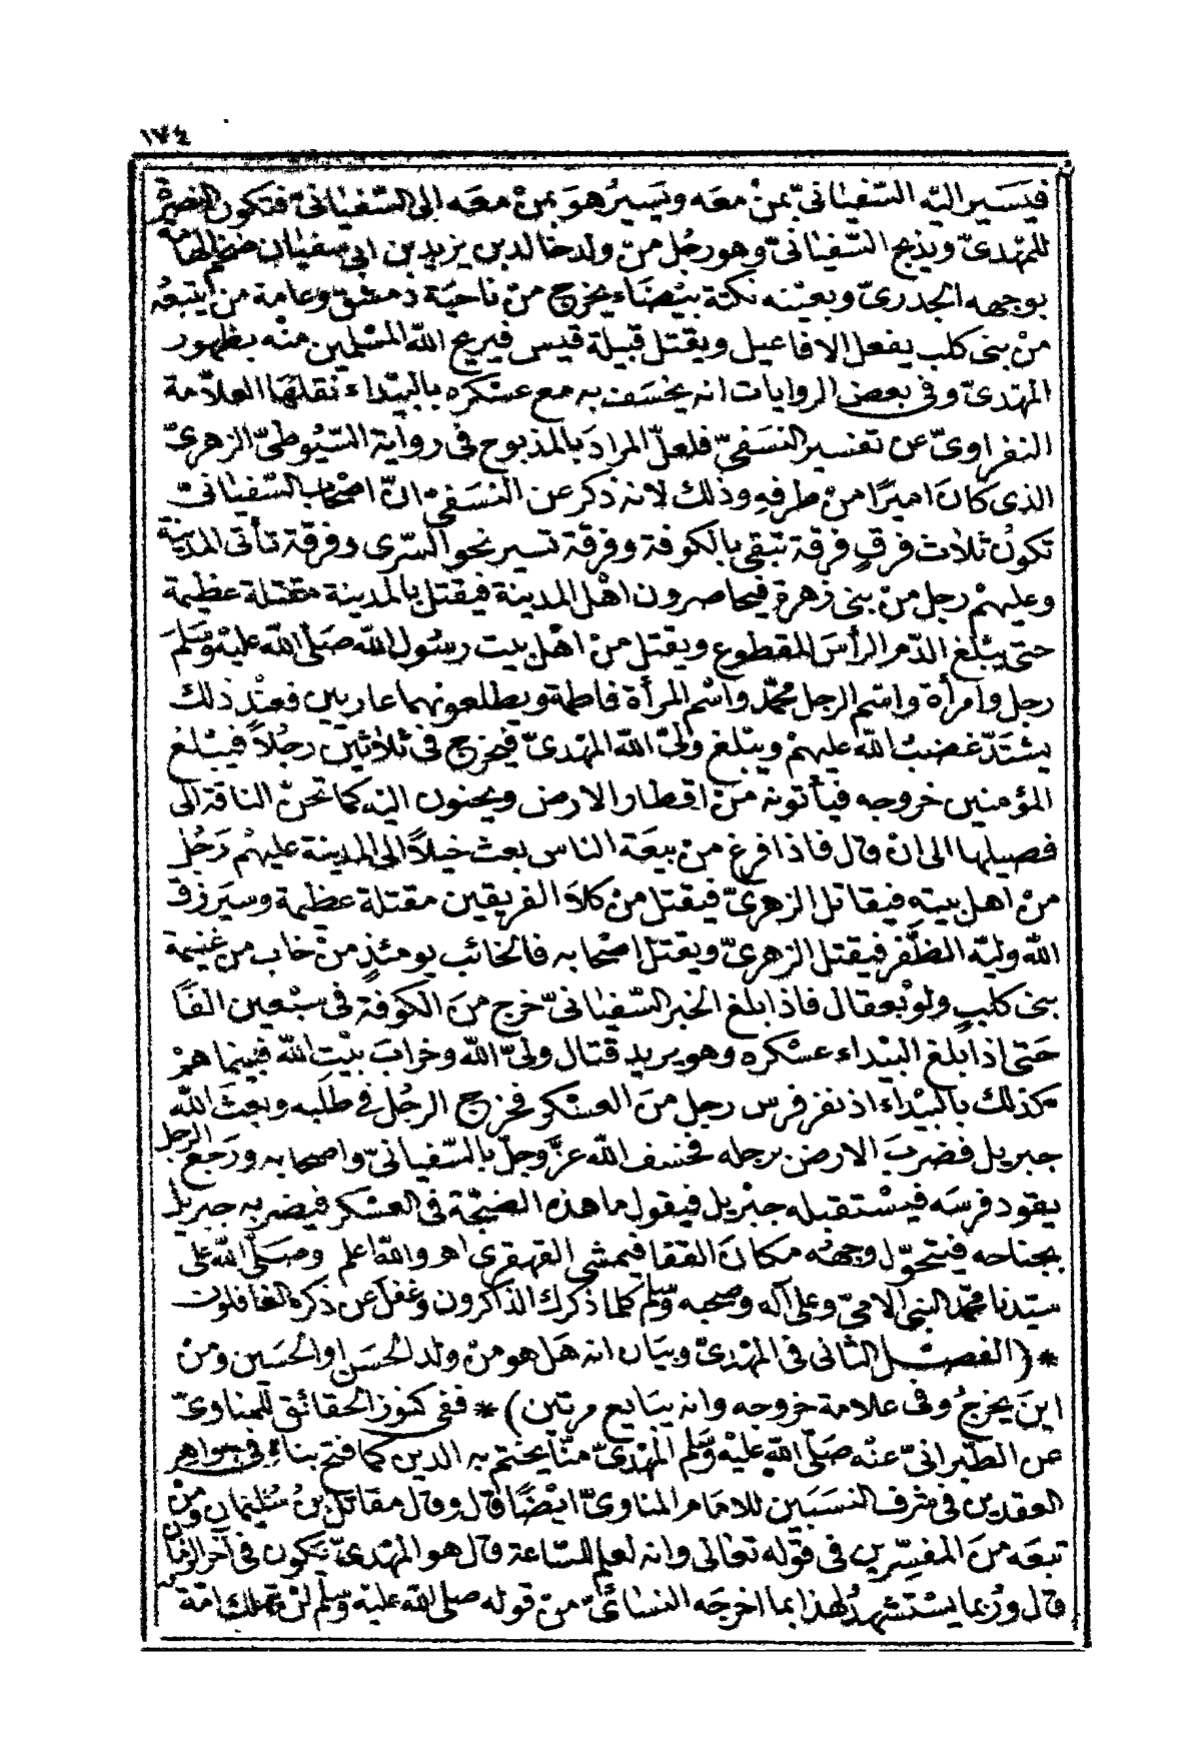 ١٧٤
فيَسَير اليْه السّفيانىّ بمنْ معَه ويَسيرُ هوَ بمنْ معَه إلى السّفيانىّ فتكون النصرة
للمَهْدىّ ويذبح السّفيانىّ وهو رجُل منْ ولد خالد بن يزيد بن ابى سفيان ضخم الهامة
بوجهه الجدرىّ وبعيْنه نكتة بيْضاء يخرج منْ ناحيَة دمشق وعامة منْ يتبعُه
منْ بنى كلب يفعل الافاعيل ويقتل قبيلة قيس فيريح الله المسْلمين منْه بظهور
المهدىّ وفى بعض الروايات انه يخسَف به مع عسْكره بالبيْداء نقلهَا العلاّمة
النفراوىّ عن تفسير النسَفىّ فلعلّ المرادَ بالمذبوح فى رواية السّيُوطىّ الزهرىّ
الذى كانَ اميرًا منْ طرفهِ وذلك لانه ذكر عن النسَفى انّ اصْحاب السّفيانىّ
تكونُ ثلاث فرقٍ فرقة تبقى بالكوفة وفرقة تسير نحو السّرى وفرقة تأتى المدينة
وعليهمْ رجل منْ بنى زهرة فيحاصرون اهْل المدينة فيقتل بالمدينة مقتلة عظيمة
حتى يبْلغ الدّم الرأسَ المقطوع ويقتل منْ اهْل بيت رسُول الله صَلّى الله عليْه وسَلّمَ
رجل وامرأة واسْم الرجل محمّد واسْم المرأة فاطمة ويطلعونهما عاريين فعنْد ذلك
يشتدّ غضبُ الله عليهمْ ويبْلغ ولىّ الله المهْدىّ فيخرج فى ثلاثين رجُلاً فيبْلغ
المؤمنين خروجه فيأتونه منْ اقطار الارض ويحنون اليْه كما تحنّ الناقة الى
فصيلها الى انْ قال فاذا فرغ منْ بيعَة الناس بعث خيلاً الى المدينة عليهمْ رَجُل
منْ اهل بيتهِ فيقاتل الزهرىّ فيقتل منْ كلاَ الفريقين مقتلة عظيمة وسيَرزق
الله وليّه الظّفر فيقتل الزهرىّ ويقتل اصْحابه فالخائب يومئذٍ منْ خاب من غنيمة
بنى كلبٍ ولوْ بعقال فاذا بلغ الخبر السّفيانىّ خرج منَ الكوفة فى سبْعين الفًا
حَتى اذا بلغ البيْداء عسْكره وهو يريد قتال ولىّ الله وخرابَ بيْتِ الله فبينما همْ
كذلك بالبيْداء اذ نفر فرس رجل منَ العسْكر فخرج الرجُل فى طلبه وبعثَ الله
جبريل فضربَ الارض برجله فخسف الله عزّ وجلّ بالسّفيانىّ واصحابه ورَجعَ الرجل
يقود فرسَه فيسْتقبله جبْريل فيقول ما هذه الضجّة فى العسْكر فيضربه جبريل
بجناحه فيتحوّل وجهُه مكانَ القفا فيمشى القهقرى اهـ والله اعلم وصَلّى الله على
سيّدنا محمّد النبى الامىّ وعلى آله وصحبه وسلم كلما ذكرك الذاكرون وغفل عن ذكره الغافلون
*( الفصْل الثانى فى المهْدىّ وبيَان انه هَل هو منْ ولد الحسَن او الحسَين ومنْ
اينَ يخرجُ وفى علامة خروجه وانه يبَايع مرّتين )* ففى كنوز الحقائق للمناوىّ
عن الطبَرانىّ عنْه صَلّى الله عليْه وسَلّم المهْدىّ منّا يختم به الدين كما فتح بنا وفى جواهر
العقدين فى شرف النسَبَين للامام المناوىّ ايْضًا قال وقال مقاتل بنُ سُليمان ومنْ
تبعَه منَ المفسّرين فى قوْله تعَالى وانه لعلم للسّاعة قال هو المهْدىّ يكون فى آخر الزمان
قال ورُبما يسْتشهدُ لهذا بما اخرجَه النسَائىّ منْ قوله صلى الله عليْه وسلم لنْ تهلك امّة